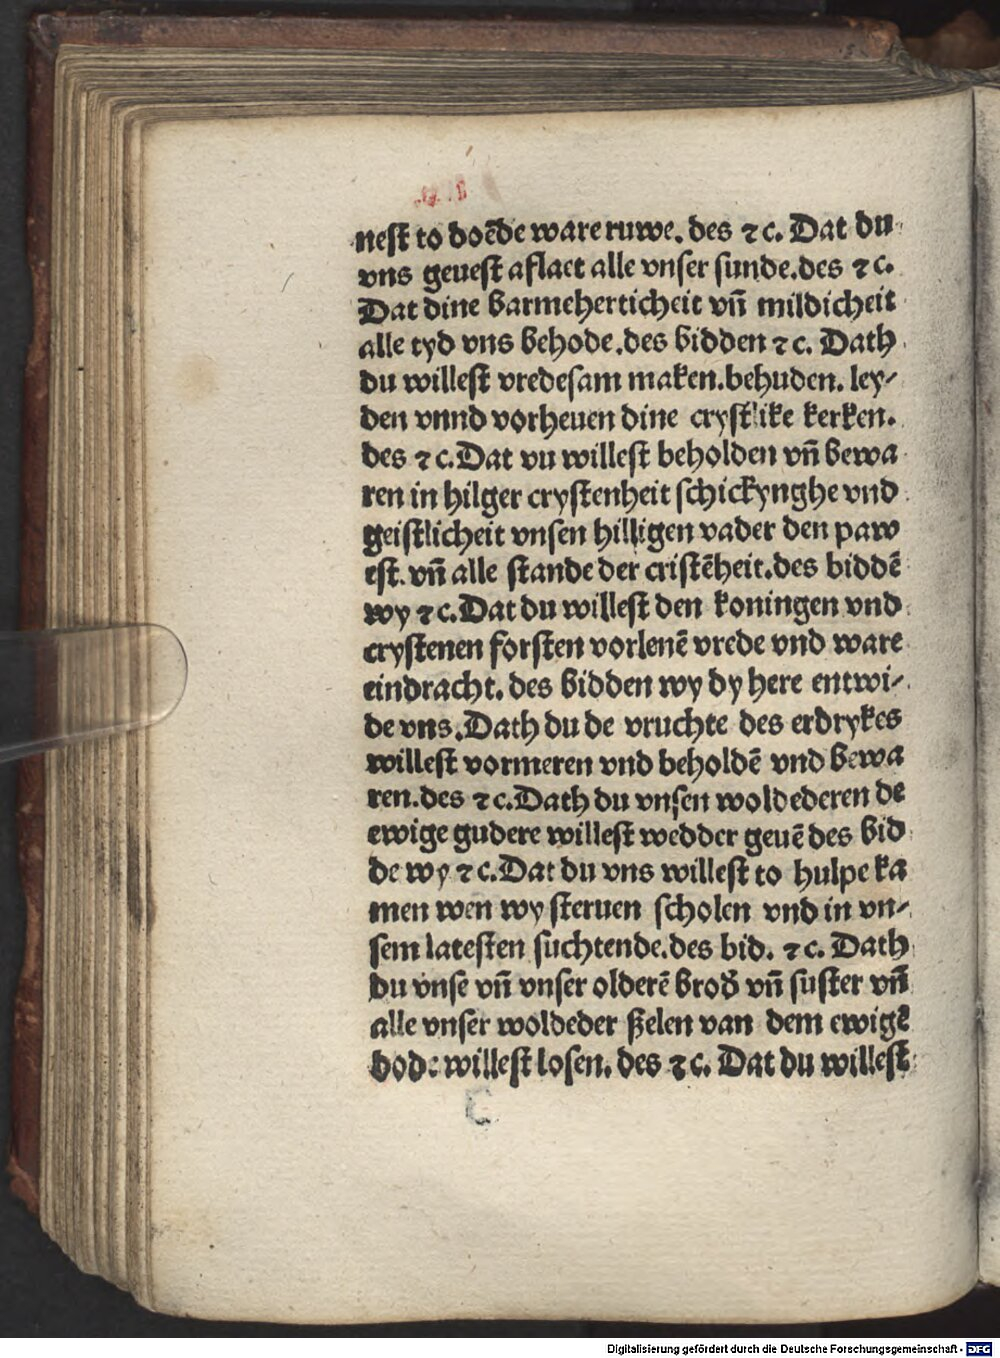 nest to doēde ware ruwe. des ⁊ c. Dat du
vns geuest aflaet alle vnser sunde. des ⁊ c.
Dat dine barmeherticheit vn̄ mildicheit
alle tyd vns behode. des bidden ⁊ c. Dath
du willest vredesam maken. behuden. ley⸗
den vnnd vorheuen dine crystlike kerken.
des ⁊ c. Dat vu willest beholden vn̄ bewa
ren in hilger crystenheit schickynghe vnd
geistlicheit vnsen hilligen vader den paw
est. vn̄ alle stande der cristēheit. des biddē
wy ⁊ c. Dat du willest den koningen vnd
crystenen forsten vorlenē vrede vnd ware
eindracht. des bidden wy dy here entwi⸗
de vns. Dath du de vruchte des erdrykes
willest vormeren vnd beholdē vnd bewa
ren. des ⁊ c. Dath du vnsen woldederen de
ewige gudere willest wedder geuē des bid
de wy ⁊ c. Dat du vns willest to hulpe ka
men wen wy steruen scholen vnd in vn⸗
sem latesten suchtende. des bid. ⁊ c. Dath
du vnse vn̄ vnser olderē brod̄ vn̄ suster vn̄
alle vnser woldeder ßelen van dem ewigē
dode willest losen. des ⁊ c. Dat du willest
Digitalisierung gefördert durch die Deutsche Forschungsgemeinschaft - DFG